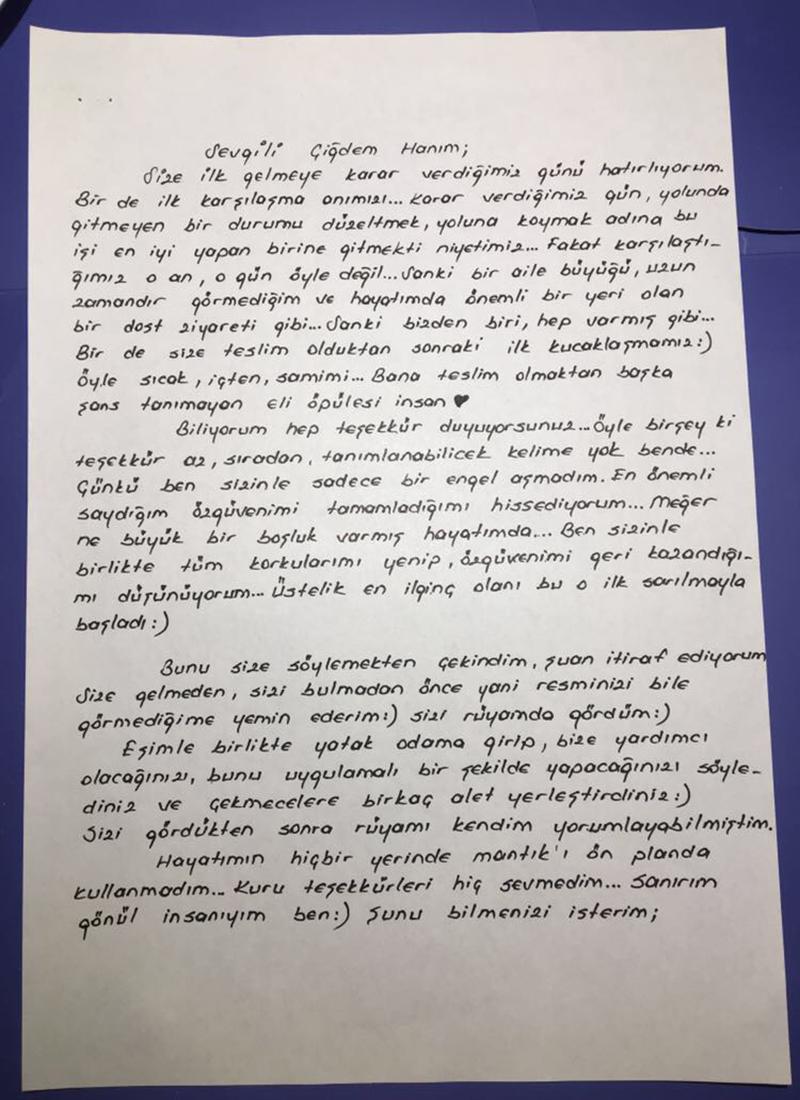 Sevgili Çiğdem Hanım;
Size ilk gelmeye karar verdiğimiz günü hatırlıyorum.
Bir de ilk karşılaşma anımızı... Karar verdiğimiz gün, yolunda
gitmeyen bir durumu düzeltmek, yoluna koymak adına bu
işi en iyi yapan birine gitmekti niyetimiz... Fakat karşılaştı-
ğımız o an, o gün öyle değil... Sanki bir aile büyüğü, uzun
zamandır görmediğim ve hayatımda önemli bir yeri olan
bir dost ziyareti gibi... Sanki bizden biri, hep varmış gibi...
Bir de size teslim olduktan sonraki ilk kucaklaşmamız:)
Öyle sıcak, içten, samimi... Bana teslim olmaktan başka
şans tanımayan eli öpülesi insan ♥
Biliyorum hep teşekkür duyuyorsunuz... Öyle birşey ki
teşekkür az, sıradan, tanımlanabilicek kelime yok bende...
Çünkü ben sizinle sadece bir engel aşmadım. En önemli
saydığım özgüvenimi tamamladığımı hissediyorum... Meğer
ne büyük bir boşluk varmış hayatımda... Ben sizinle
birlikte tüm korkularımı yenip, özgüvenimi geri kazandığı-
mı düşünüyorum... Üstelik en ilginç olanı bu o ilk sarılmayla
başladı:)
Bunu size söylemekten çekindim, şuan itiraf ediyorum
Size gelmeden, sizi bulmadan önce yani resminizi bile
görmediğime yemin ederim:) sizi rüyamda gördüm:)
Eşimle birlikte yatak odama girip, bize yardımcı
olacağınızı, bunu uygulamalı bir şekilde yapacağınızı söyle-
diniz ve çekmecelere birkaç alet yerleştirdiniz:)
Sizi gördükten sonra rüyamı kendim yorumlayabilmiştim.
Hayatımın hiçbir yerinde mantık'ı ön planda
kullanmadım... Kuru teşekkürleri hiç sevmedim... Sanırım
gönül insanıyım ben:) Şunu bilmenizi isterim;